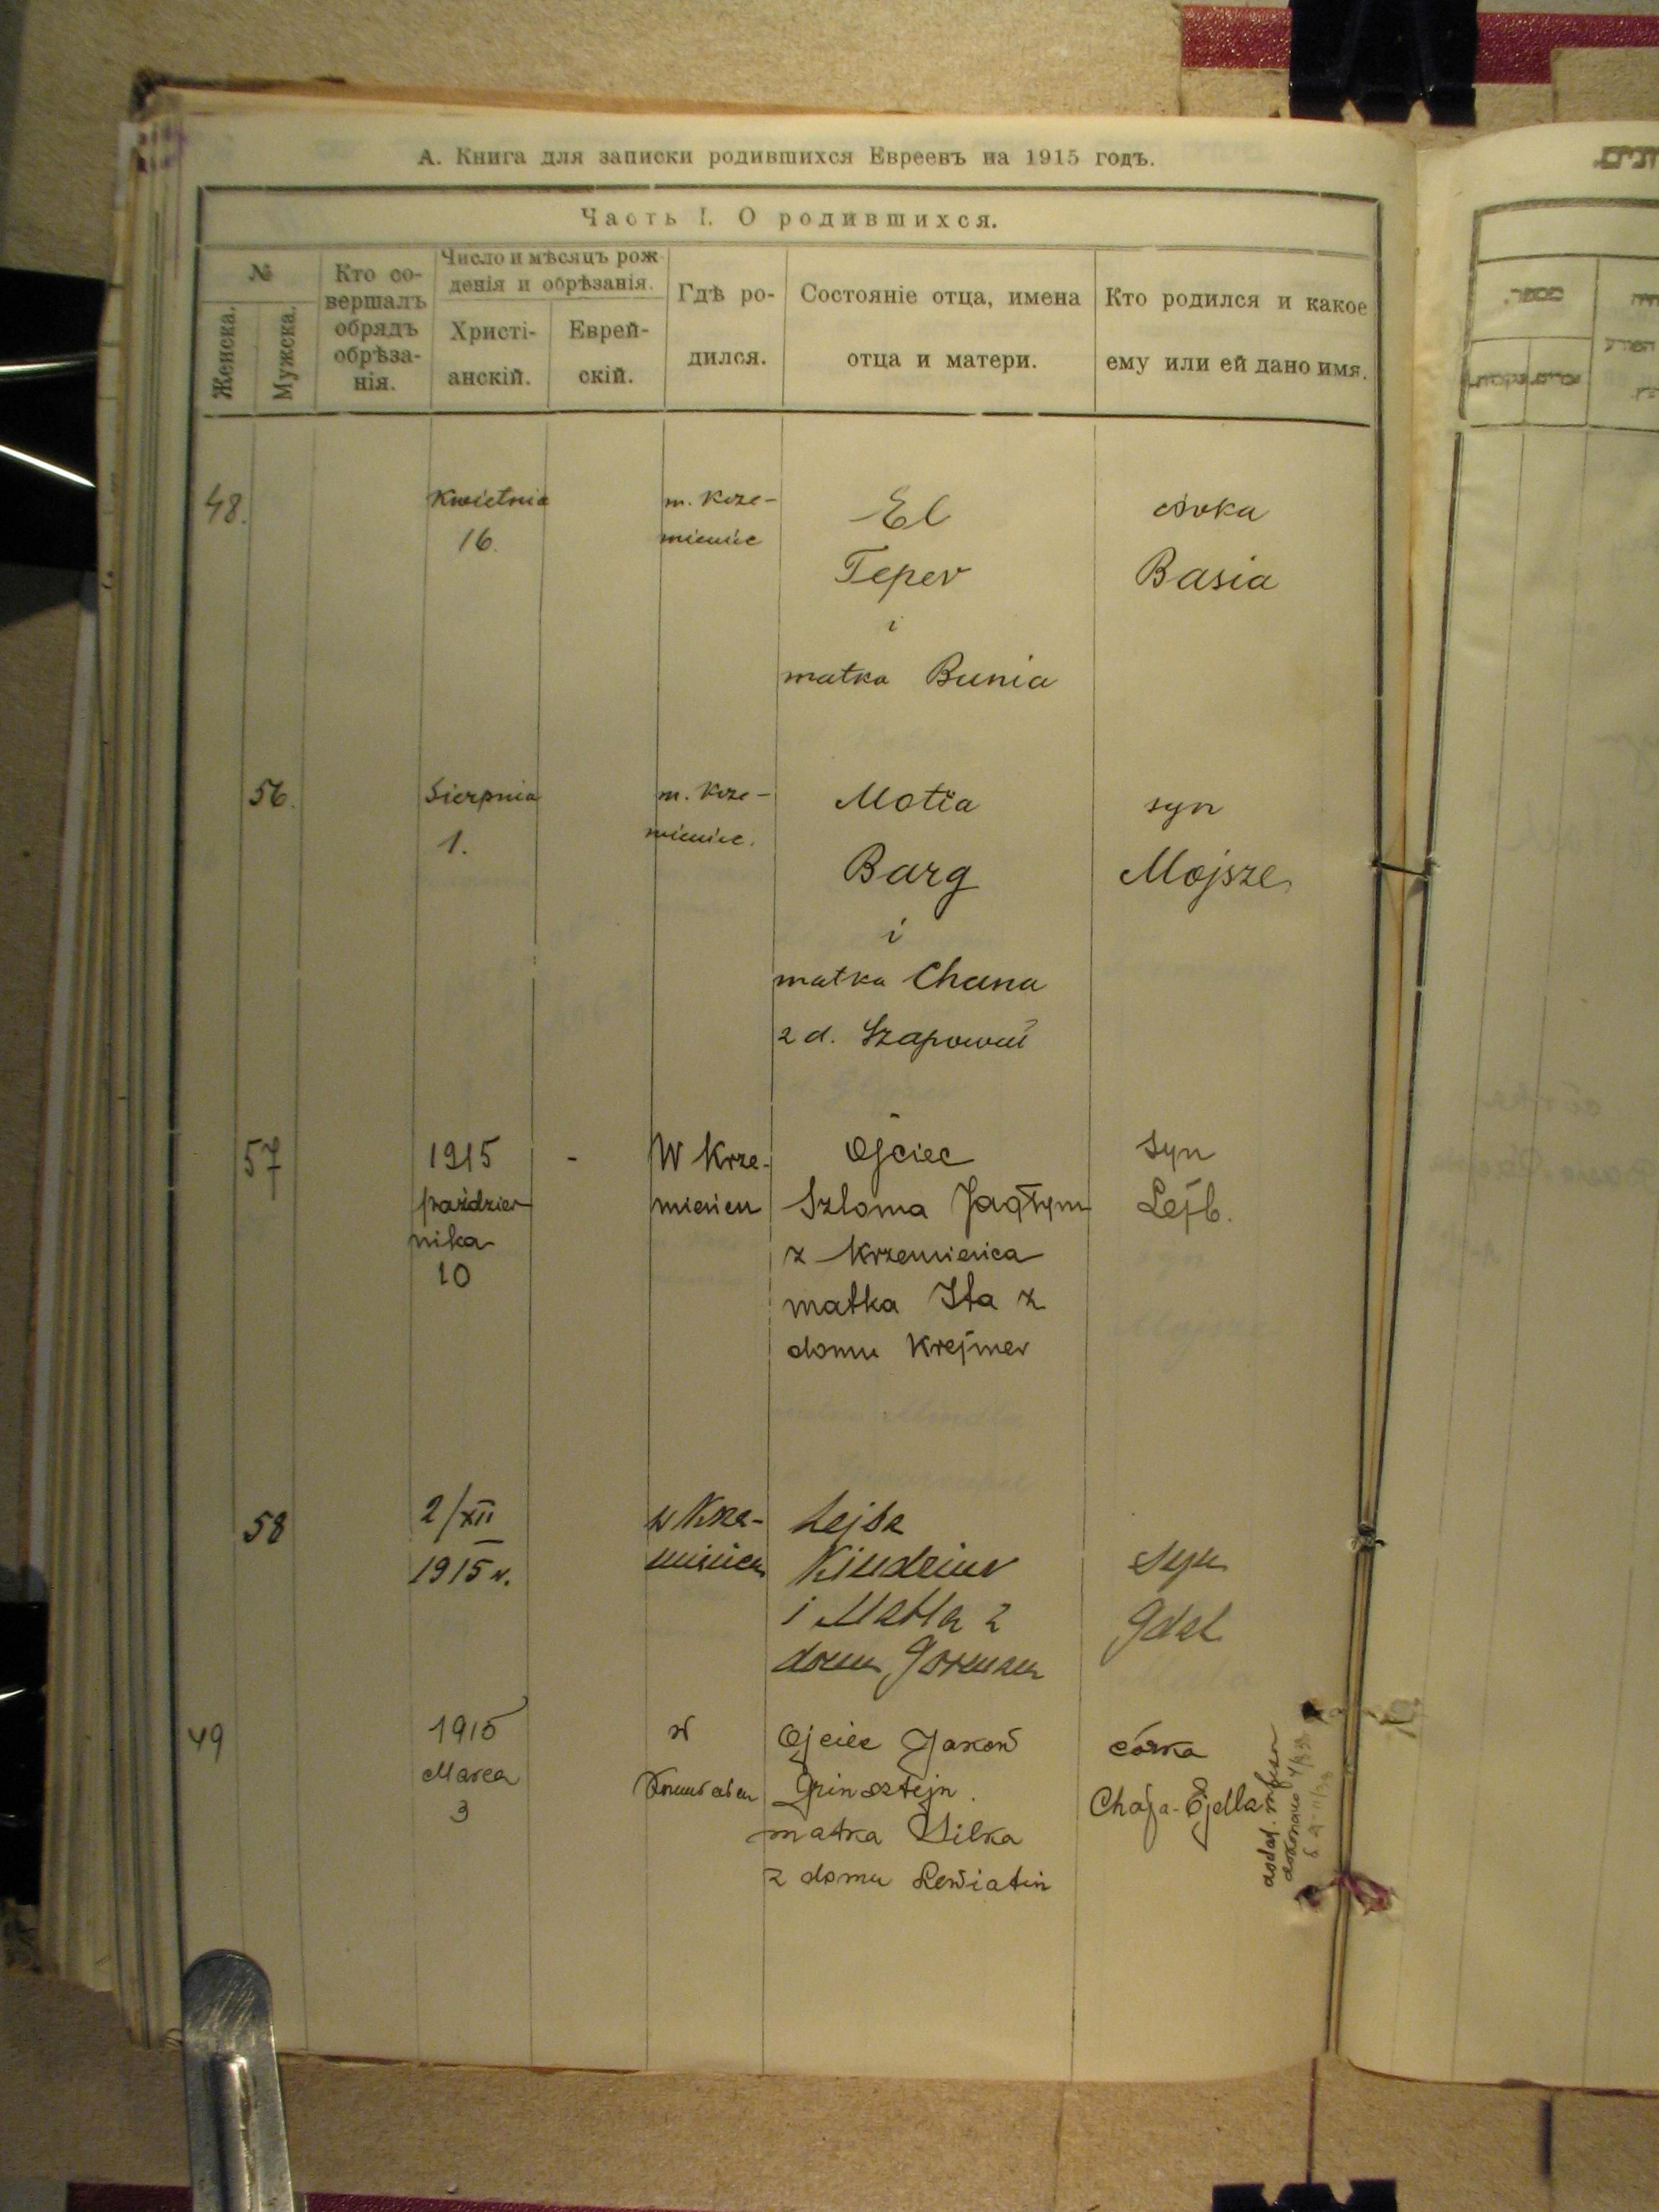 А. Книга для записки родившихся Евреевъ на 1915 годъ.
Часть I. О родившихся.
№
Женска.
Мужска.
Кто со-
вершалъ
обрядъ
обрѣза-
нія.
Число и мѣсяцъ рож
денія и обрѣзанія.
Христі-
анскій.
Еврей-
скій.
Гдѣ ро-
дился.
Состояніе отца, имена
отца и матери.
Кто родился и какое
ему или ей дано имя.
48.
Kwietnia
16.
m. Krze-
mieniec
El
Teper
i
matka Bunia
córka
Basia
56.
Sierpnia
1.
m. Krze-
mieniec.
Motia
Barg
i
matka Chana
z d.
syn
Mojsze
57
1915
paździer
nika
10
-
W Krze-
mieńcu
Ojciec
Szloma
z Krzemieńca
matka Ita z
domu Krejmer
Syn
Lejb.
58
2/XII
1915 r.
w Krze-
mieńcu
Lejba
i z
domu
syn
49
1915
Marca
3
w
Ojciec Jakow
Grinsztejn.
matka
z domu Lewiatin
córka
Chaja-Ejdla